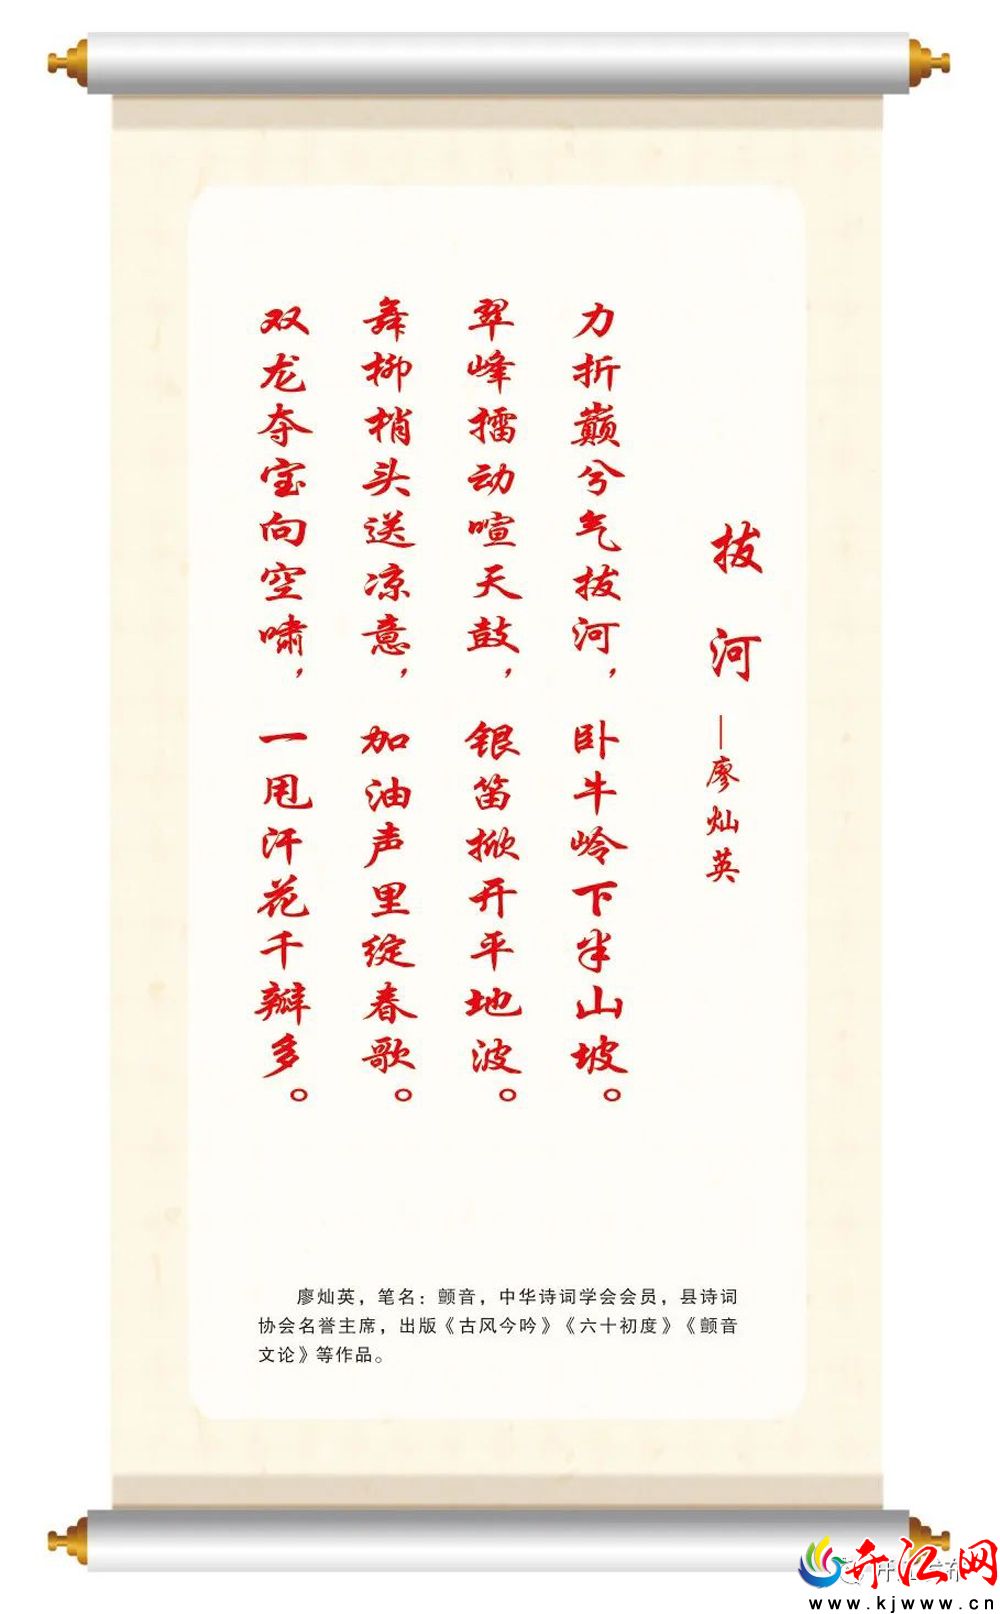 拔河
—廖灿英
力折巅兮气拔河，卧牛岭下半山坡。
翠峰擂动喧天鼓，银笛掀开平地波。
舞柳梢头送凉意，加油声里绽春歌。
双龙夺宝向空啸，一甩汗花千瓣多。
廖灿英，笔名：颤音，中华诗词学会会员，县诗词
协会名誉主席，出版《古风今吟》《六十初度》《颤音
文论》等作品。
开江网
www.kjwww.cn